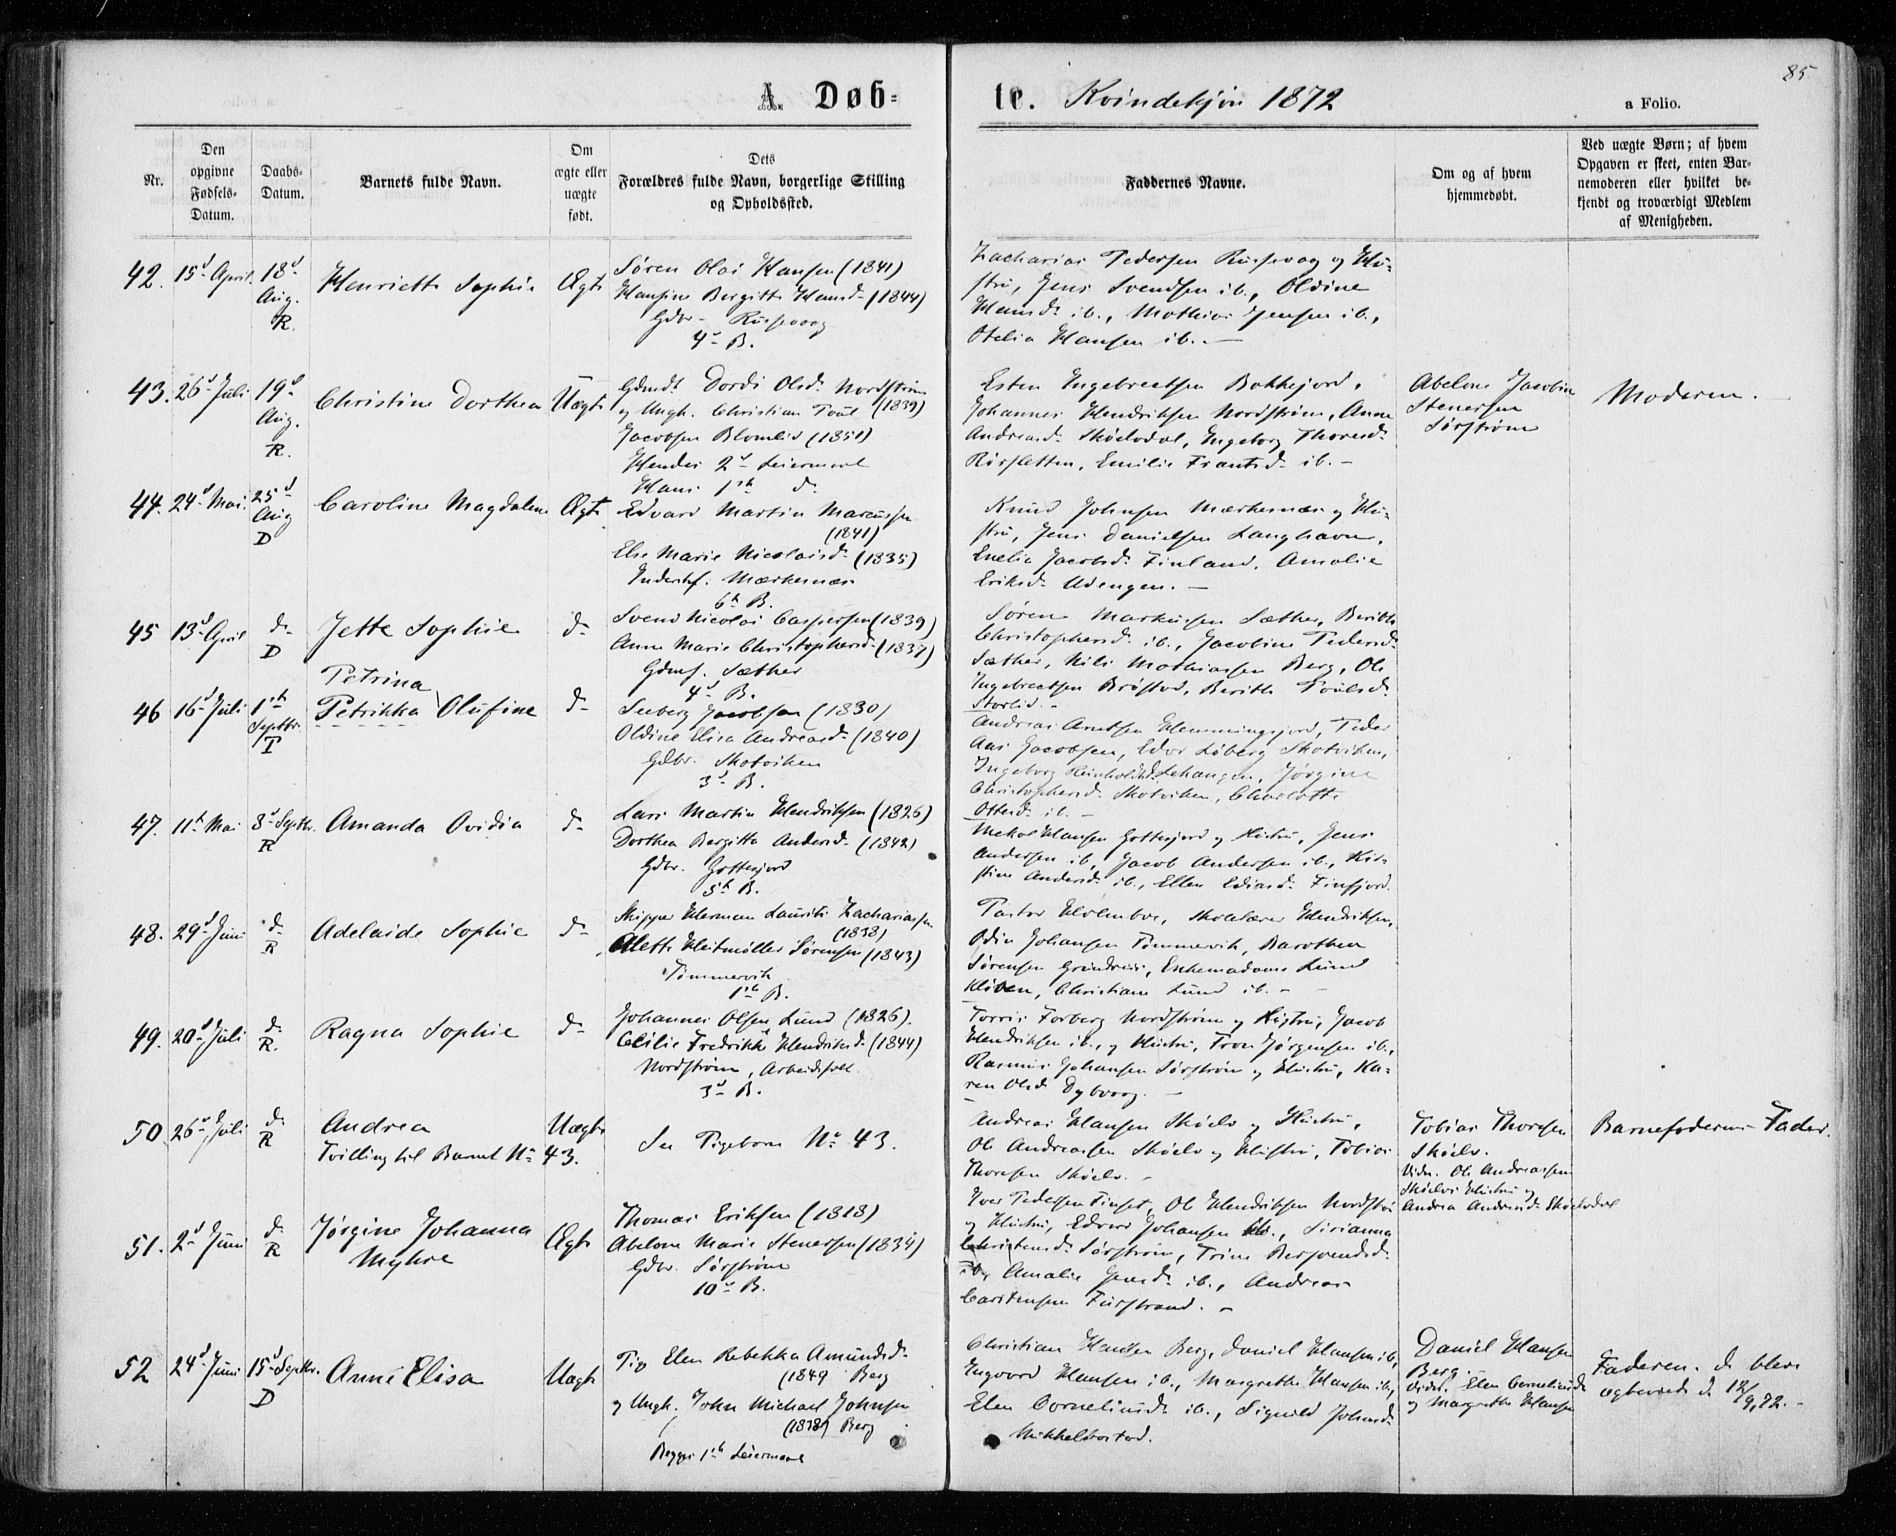 85
A. Døb-
te. Kvindekjøn 1872
a Folio.
Nr.
Den opgivne Fødsels-Datum.
Daabs-Datum.
Barnets fulde Navn.
Om ægte eller uægte født.
Dets Forældres fulde Navn, borgerlige Stilling og Opholdssted.
Faddernes Navne.
Om og af hvem hjemmedøbt.
Ved uægte Børn; af hvem Opgaven er skeet, enten Barnemoderen eller hvilket bekjendt og troværdigt Medlem af Menigheden.
42. 15d April 18d Aug. R. Henriette Sophie Ægte
Søren Olai Hansen (1841)
Hansine Bergitte Hansd. (1844)
Gdbr.
4d B.
Zacharias Pedersen og Hu-
stru, Jens Svendsen ib., Oldine
Hansd. ib., Mathias Jensen ib.,
Otelia Hansen ib. —
43. 26d Juli 19d Aug. R. Christine Dorthea Uægte
Dordi Olsd. Nordstrøm
og Ungk. Christian Poul (1839)
Jacobsen Blomlid (1851)
Hendes 2d Leiermaal
Hans 1ste do
Esten Ingebrectsen Bakkejord,
Johannes Hendriksen Nordstrøm, Anne
Andreasd. Skøelvdal, Ingeborg Thoresd.
Rørsletten, Emilie Frantsd. ib. —
Abelone Jacobine
Stenersen
Sørstrøm
Moderen.
44. 24d Mai 25d Aug D Caroline Magdalene Ægte
Edvard Martin Marcussen
(1841)
Else Marie Nicolaisd. (1835)
6te B.
Knud Johnsen og Hu-
stru, Jens Danielsen Langhavn,
Jacobsd. Finland, Amalie
Eriksd. Udengen. —
45 13d April do D Jette Sophie do
Svend Nicolai Caspersen (1839)
Anne Marie Christophersd. (1837)
Gdmf. Sæther
4d B.
Søren Markussen Sæther, Berith
Christophersd. ib., Jacobine Pedersd.
Sæther, Nils Mathiassen Berg, Ole
Ingebrectsen Brøstad, Berith Poulsd.
Storlid. —
46 16d Juli 1ste Septbr. T
Petrina
Petrikka Olufine do
Seeberg Jacobsen (1830)
Oldine Elisa Andreasd. (1840)
Gdbr. Skotviken
3d B.
Andreas Arntsen Hemmingsjord, Peder
Aas Jacobsen, Edvr Løberg Skotviken,
Ingeborg Lehangen, Jørgine
Christophersd. Skotviken, Charlotte
Ottesd. ib. —
47. 11te Mai 8d Septbr. R Amanda Ovidia do
Lars Martin Hendriksen (1826)
Dorthea Bergitte Andersd. (1842)
Gdbr. Gottesjord
5te B.
Hansen Gottesjord og Hustru, Jens
Andersen ib., Jacob Andersen ib., Kir-
stine Andersd. ib., Ellen Finfjord.
48. 29d Juni do R Adelaide Sophie do
Skipper Herman Laurits Zachariassen
(1838)
Alette Heitmøller Sørensen (1843)
Tømmervik
1ste B.
Pastor Holmboe, Skolelærer Hendriksen,
Odin Johansen Tømmervik, Barothea
Sørensen Enkemadame Lund
Kløven, Christiane Lund ib. —
49. 20d Juli do R. Ragna Sophie do
Johannes Olsen Lund (1826).
Cecilie Fredrikke Hendriksd. (1844)
Nordstrøm, Arbeidsfolk
3d B.
Torris Forberg Nordstrøm og Hustru, Jacob
Hendriksen ib., og Hustru, Tron Jørgensen ib.,
Rasmus Johansen Sørstrøm og Hustru, Ka-
ren Olsd. Dybvaag. —
50 26d Juli do R Andrea Uægte
Tvilling til Barnet No 43.
Se Pigebarn No 43.
Andreas Hansen Skøelv og Hustru,
Ole Andreassen Skøelv og Hustru, Tobias
Thoresen Skøelv. —
Tobias Thoresen
Skøelv.
Vidn. Ole Andreassen
Skøelvs Hustru og
Andrea Andreasd. Skøelvdal
Barnefaderens Fader.
51. 2d Juni do R Jørgine Johanna
Myhre Ægte
Thomas Eriksen (1818)
Abelone Marie Stenersen (1834)
Gdbr. Sørstrøm
10de B.
Iver Pedersen Finset, Ole Hendriksen Nordstrøm
og Hustru, Edvard Johansen ib., Sirianna
Christensd. Sørstrøm, Trine Bersvendsd.
ib., Amalie Jensd. ib., Andreas
Carstensen Furstrand. —
52 24d Juni 15d Septbr. D Anne Elisa Uægte
Pige Elen Rebekka Amundsd.
(1849 Berg
og Ungk. John Michael Johnsen
(1838) Berg
Begges 1ste Leiermaal
Christian Hansen Berg, Daniel Hansen ib.,
Ingvard Hansen ib., Margrethe Hansen ib.,
Elen Corneliusd. ib., Signild Johnsd.
Mikkelbostad.
Daniel Hansen
Berg.
Vidn. Elen Corneliusd.
og Margrethe Hansen
Faderen. de bleve
ægteviede d. 12/9,72. —